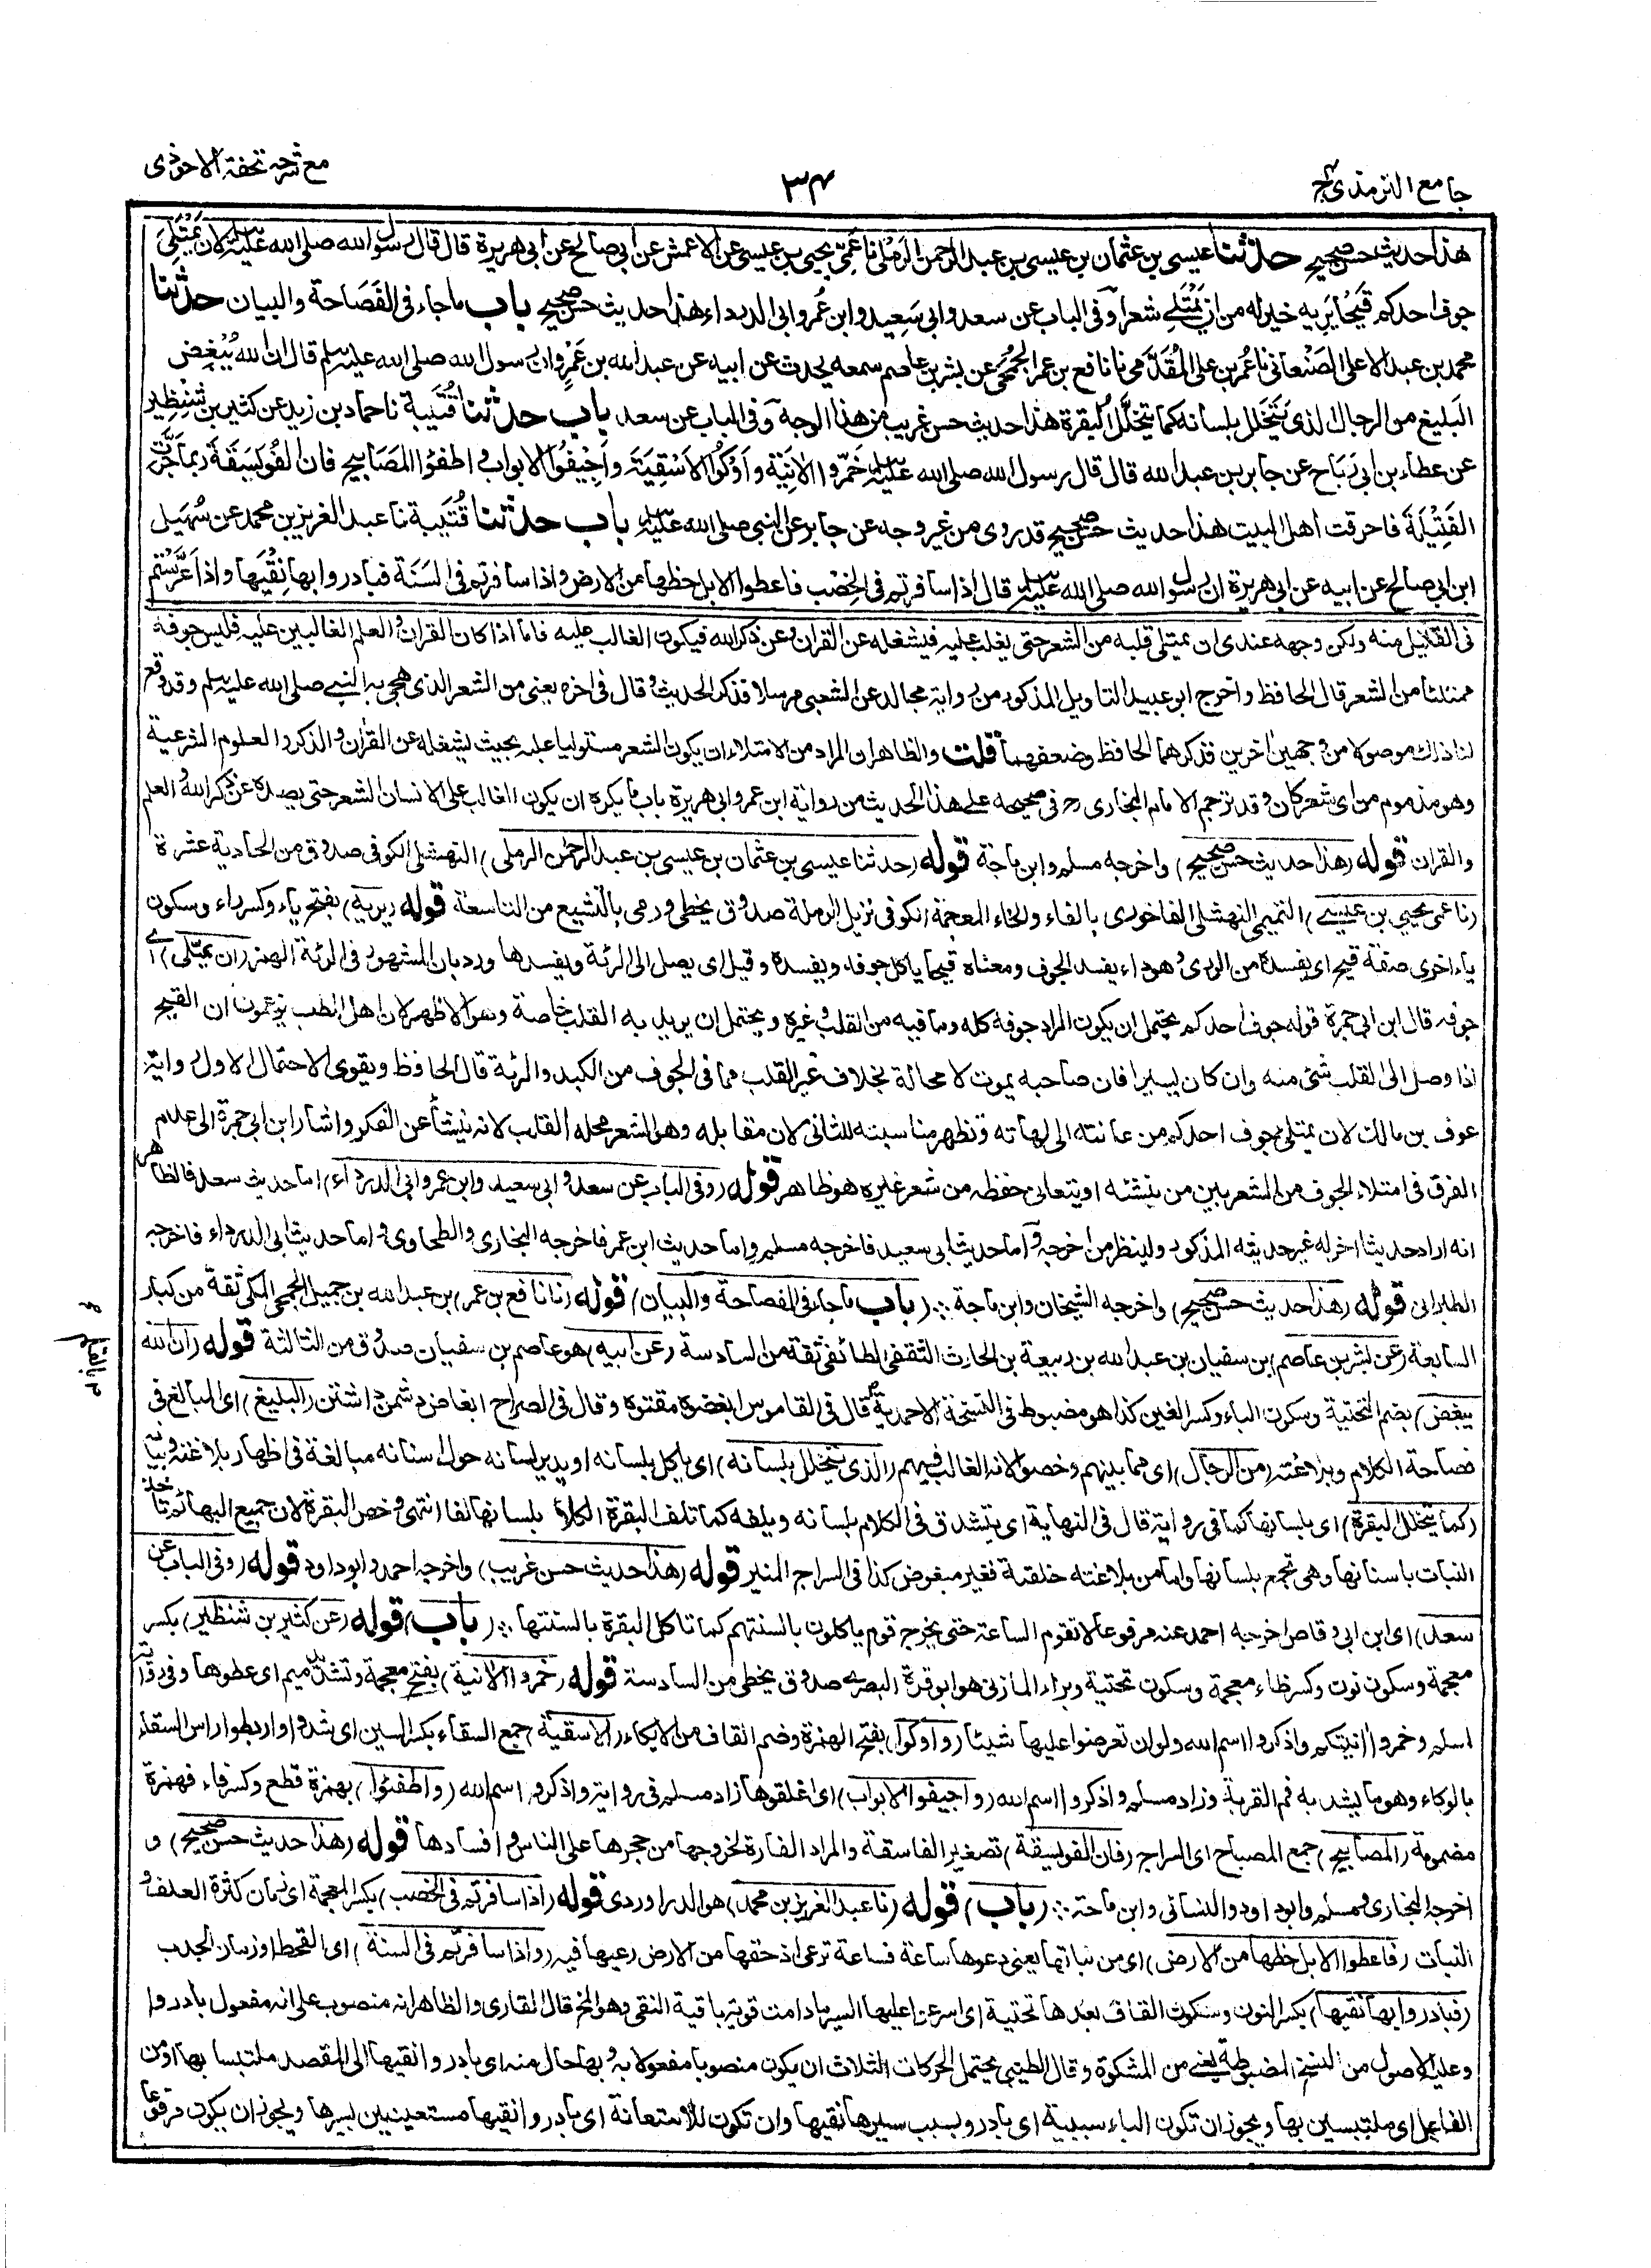 جامع الترمذي ج۴
۳۴
مع شرحه تحفة الاحوذى
هذا حديث حسن صحيح حدثنا عيسى بن عثمان بن عيسى بن عبد الرحمن الرملى نا عمى يحيى بن عيسى عن الاعمش عن ابى صالح عن ابى هريرة قال قال رسول الله صلى الله عليه وسلم لان يَمْتَلِئَ
جوف احدكم قَيْحًا يَرِيه خير له من ان يَمْتَلِئ شعرا وفى الباب عن سعد وابى سَعِيد وابن عُمر وابى الدرداء هذا حديث حسن صحيح باب ما جاء فى الفَصَاحة والبيان حدثنا
محمد بن عبد الاعلى الصَنْعانى نا عُمر بن على المُقَدَّمى نا نافع بن عمر الجُمَحى عن بشر بن عاصم سمعه يحدث عن ابيه عن عبد الله بن عَمْرٍو ان رسول الله صلى الله عليه وسلم قال ان الله يُبْغِض
البَلِيغ من الرجال الذى يَتَخَلَّل بلسانه كما تتخلَّل البقرة هذا حديث حسن غريب من هذا الوجه وفى الباب عن سعد باب حدثنا قُتَيبة نا حماد بن زيد عن كثير بن شِنْظِير
عن عطاء بن ابى رَبَاح عن جابر بن عبد الله قال قال رسول الله صلى الله عليه وسلم خَمِّروا الآنِيَة وَاَوْكُوا الاَسْقِيَة وَاَجِيفُوا الابواب واطفئوا المَصَابيح فان الفُوَيسقَةَ ربما جَرَّت
الفَتِيْلَةَ فاحرقت اهل البيت هذا حديث حسن صحيح قد روى من غير وجه عن جابر عن النبى صلى الله عليه وسلم باب حدثنا قُتَيبة نا عبد العزيز بن محمد عن سُهَيل
ابن ابى صالح عن ابيه عن ابى هريرة ان رسول الله صلى الله عليه وسلم قال اذا سافرتم فى الخِصْب فاعطوا الابل حظها من الارض واذا سافرتم فى السَنَة فبادروا بها نِقْيَها واذا عَرَّسْتم
فى القليل منه ولكن وجهه عندى ان يمتلئ قلبه من الشعر حتى يغلب عليه فيشغله عن القران وعن ذكر الله فيكون الغالب عليه فاما اذا كان القران والعلم الغالبين عليه فليس جوفه
ممتلئا من الشعر قال الحافظ واخرج ابو عبيد التاويل المذكور من رواية مجالد عن الشعبى مرسلا فذكر الحديث وقال فى اخره يعنى من الشعر الذى هجى به النبى صلى الله عليه وسلم وقد وقع
لنا ذلك موصولا من وجهين اخرين فذكرهما الحافظ وضعفهما قلت والظاهر ان المراد من الامتلاء ان يكون الشعر مستوليا عليه بحيث يشغله عن القران والذكر والعلوم الشرعية
وهو مذموم من اى شعر كان وقد ترجم الامام البخارى رح فى صحيحه على هذا الحديث من رواية ابن عمر وابى هريرة باب ما يكره ان يكون الغالب على الانسان الشعر حتى يصده عن ذكر الله والعلم
والقران قوله (هذا حديث حسن صحيح) واخرجه مسلم وابن ماجة قوله (حدثنا عيسى بن عثمان بن عيسى بن عبد الرحمن الرملى) النهشلى الكوفى صدوق من الحادية عشرة
(نا عمى يحيى بن عيسى) التميمى النهشلى الفاخورى بالفاء والخاء المعجمة الكوفى نزيل الرملة صدوق يخطى ورمى بالتشيع من التاسعة قوله (يريه) بفتح ياء وكسر راء وسكون
ياء اخرى صفة قيح اى يفسده من الورى وهو داء يفسد الجوف ومعناه قيحا ياكل جوفه ويفسده وقيل اى يصل الى الرئة ويفسدها ورد بان المشهور فى الرئة الهمز (ان يمتلئ) اى
جوفه قال ابن ابى جمرة قوله جوف احدكم يحتمل ان يكون المراد جوفه كله وما فيه من القلب وغيره ويحتمل ان يريد به القلب خاصة وهو الاظهر لان اهل الطب يزعمون ان القيح
اذا وصل الى القلب شئ منه وان كان يسيرا فان صاحبه يموت لا محالة بخلاف غير القلب مما فى الجوف من الكبد والرئة قال الحافظ ويقوى الاحتمال الاول رواية
عوف بن مالك لان يمتلئ جوف احدكم من عانته الى لهاته وتظهر مناسبته للثانى لان مقابله وهو الشعر محله القلب لانه ينشأ عن الفكر واشار ابن ابى جمرة الى عدم
الفرق فى امتلاء الجوف من الشعر بين من ينشئه او يتعانى حفظه من شعر غيره هو ظاهر قوله (وفى الباب عن سعد وابى سعيد وابن عمر وابى الدرداء) اما حديث سعد فالظاهر
انه اراد حديثا اخر له غير حديثه المذكور ولينظر من اخرجه واما حديث ابى سعيد فاخرجه مسلم واما حديث ابن عمر فاخرجه البخارى والطحاوى واما حديث ابى الدرداء فاخرجه
الطبرانى قوله (هذا حديث حسن صحيح) واخرجه الشيخان وابن ماجة ∴ (باب ما جاء فى الفصاحة والبيان) قوله (نا نافع بن عمر) بن عبد الله بن جميل الجمحى المكى ثقة من كبار
السابعة (عن بشر بن عاصم) بن سفيان بن عبد الله بن ربيعة بن الحارث الثقفى الطائفى ثقة من السادسة (عن ابيه) هو عاصم بن سفيان صدوق من الثالثة قوله (ان الله
يبغض) بضم التحتية وسكون الباء وكسر الغين كذا هو مضبوط فى النسخة الاحمدية قال فى القاموس ابغضوه مقتوه وقال فى الصراح ابغاض دشمن داشتن (البليغ) اى المبالغ فى
فصاحة الكلام وبلاغته (من الرجال) اى مما بينهم وخصوا لانه الغالب فيهم (الذى يتخلل بلسانه) اى ياكل بلسانه او يدير لسانه حول اسنانه مبالغة فى اظهار بلاغته وبيانه
(كما تتخلل البقرة) اى بلسانها كما فى رواية قال فى النهاية اى يتشدق فى الكلام بلسانه ويلفه كما تلف البقرة الكلأ بلسانها لفا انتهى وخص البقرة لان جميع البهائم تاخذ
النبات باسنانها وهى تجمع بلسانها واما من بلاغته خلقية فغير مبغوض كذا فى السراج المنير قوله (هذا حديث حسن غريب) واخرجه احمد وابو داود قوله (وفى الباب عن
سعد) اى ابن ابى وقاص اخرجه احمد عنه مرفوعا لا تقوم الساعة حتى يخرج قوم ياكلون بالسنتهم كما تاكل البقرة بالسنتها ∴ (باب) قوله (عن كثير بن شنظير) بكسر
معجمة وسكون نون وكسر ظاء معجمة وسكون تحتية وبراء المازنى هو ابو قرة البصرى صدوق يخطى من السادسة قوله (خمروا الآنية) بفتح معجمة وتشديد ميم اى غطوها وفى رواية
لمسلم وخمروا انيتكم واذكروا اسم الله ولو ان تعرضوا عليها شيئا (واوكوا) بفتح الهمزة وضم القاف من الايكاء (الاسقية) جمع السقاء بكسر السين اى شدوا واربطوا راس السقاء
بالوكاء وهو ما يشد به فم القربة وزاد مسلم واذكروا اسم الله (واجيفوا الابواب) اى اغلقوها زاد مسلم فى رواية واذكروا اسم الله (واطفئوا) بهمزة قطع وكسر فاء فهمزة
مضمومة (المصابيح) جمع المصباح اى السراج (فان الفويسقة) تصغير الفاسقة والمراد الفارة لخروجها من حجرها على الناس وافسادها قوله (هذا حديث حسن صحيح) و
اخرجه البخارى ومسلم وابو داود والنسائى وابن ماجة ∴ (باب) قوله (نا عبد العزيز بن محمد) هو الدراوردى قوله (اذا سافرتم فى الخصب) بكسر المعجمة اى زمان كثرة العلف و
النبات (فاعطوا الابل حظها من الارض) اى من نباتها يعنى دعوها ساعة فساعة ترعى اذ حقها من الارض رعيها فيه (واذا سافرتم فى السنة) اى القحط او زمان الجدب
(فبادروا بها نقيها) بكسر النون وسكون القاف بعدها تحتية اى اسرعوا عليها السير ما دامت قوية باقية النقى وهو المخ قال القارى والظاهر انه منصوب على انه مفعول بادروا
وعليه الاصول من النسخ المضبوطة يعنى من المشكوة وقال الطيبى يحتمل الحركات الثلاث ان يكون منصوبا مفعولا به وبها حال منه اى بادروا نقيها الى المقصد ملتبسا بها او من
الفاعل اى ملتبسين بها ويجوز ان تكون الباء سببية اى بادروا بسبب سيرها نقيها وان تكون للاستعانة اى بادروا نقيها مستعينين بسيرها ويجوز ان يكون مرفوعا